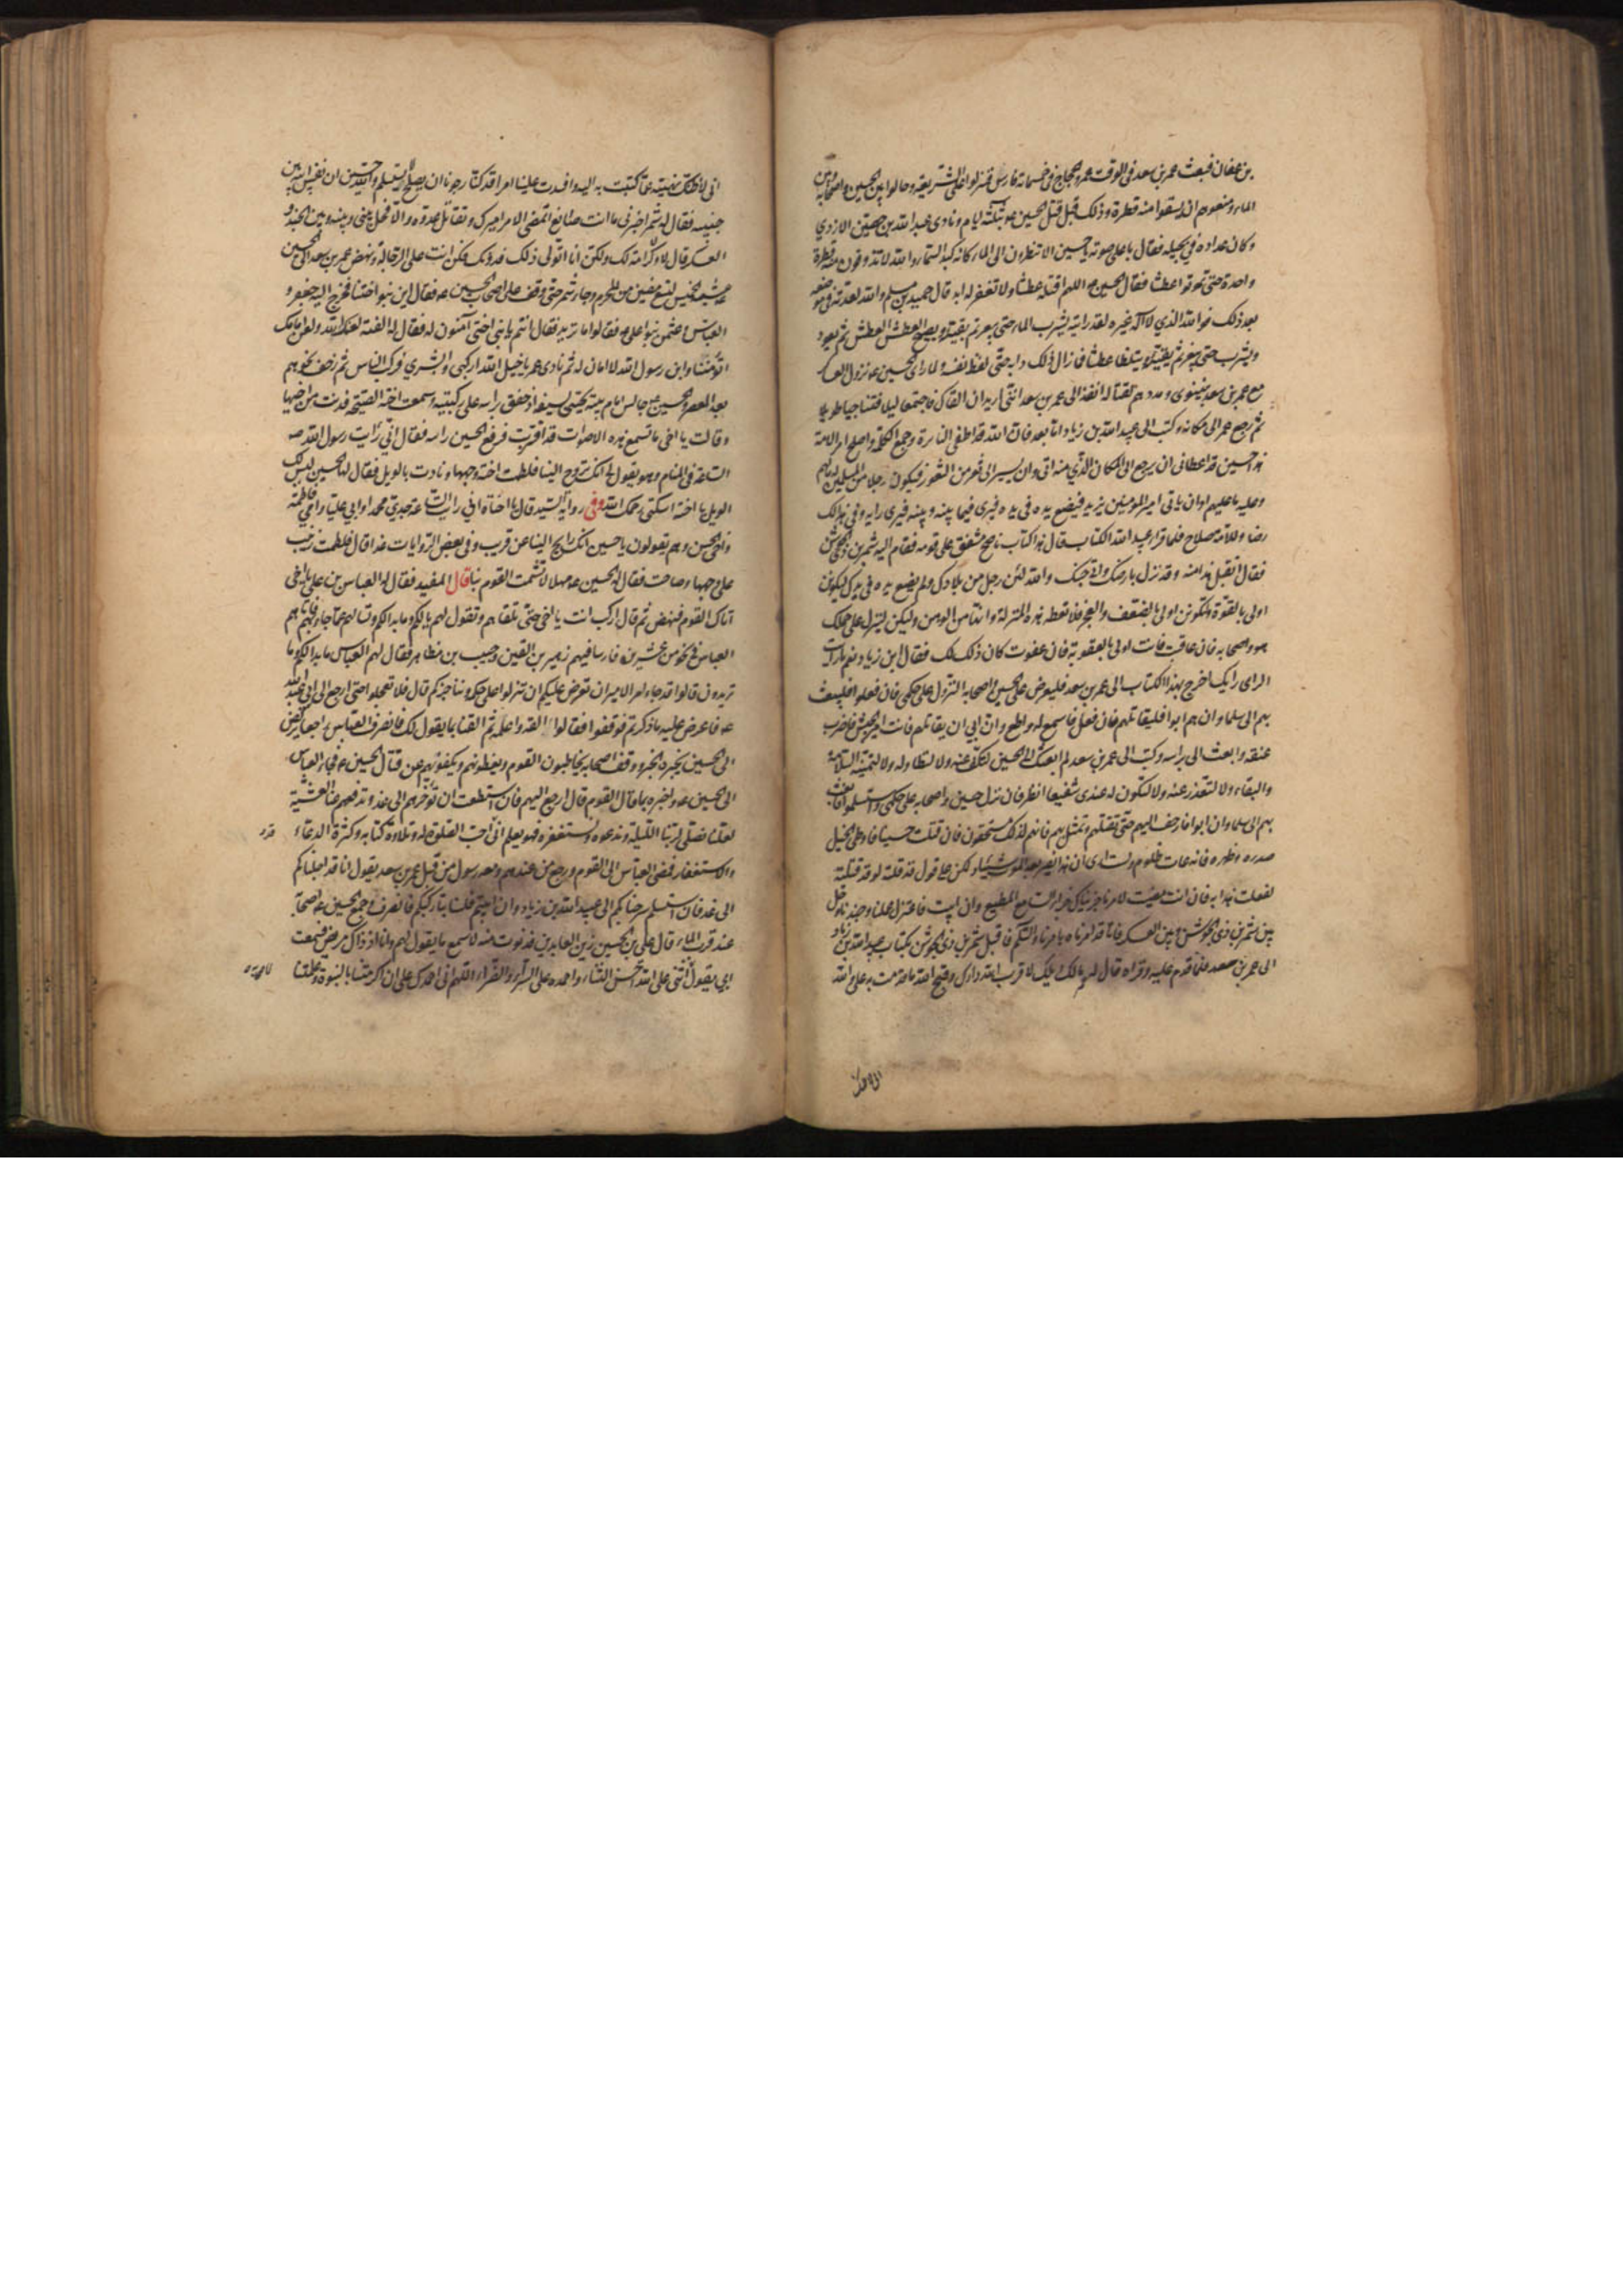 بن عفان فبعث عمر بن سعد في الوقت عمرو بن حجاج في خمسمائة فارس فنزلوا على الشريعة وحالوا بين الحسين واصحابه وبين
الماء ومنعوهم ان يستقوا منه قطرة وذلك قبل قتل الحسين ع بثلثة ايام ونادى عبد الله بن حصين الازدي
وكان عداده في بجيلة فقال باعلى صوته يا حسين الا تنظرون الى الماء كانه كبد السماء والله لا تذوقون منه قطرة
واحدة حتى تموتوا عطشا فقال الحسين ع اللهم اقتله عطشا ولا تغفر له ابدا قال حميد بن مسلم والله لعدته في مرضه
بعد ذلك فوالله الذي لا اله غيره لقد رايته يشرب الماء حتى يبغر ثم يقيئه ويصيح العطش العطش ثم يعود
ويشرب حتى يبغر ثم يقيئه ويتلظا عطشا فما زال ذلك دابه حتى لفظ نفسه ولما راى الحسين ع نزول العساكر
مع عمر بن سعد بنينوى ومددهم لقتاله انفذ الى عمر بن سعد انني اريد ان القاك فاجتمعا ليلا فتناجيا طويلا
ثم رجع عمر الى مكانه وكتب الى عبيد الله بن زياد اما بعد فان الله قد اطفى النائرة وجمع الكلمة واصلح امر الامة
هذا حسين قد اعطاني ان يرجع الى المكان الذي منه اتى وان يسير الى ثغر من الثغور فيكون رجلا من المسلمين له ما لهم
وعليه ما عليهم او ان ياتي امير المومنين يزيد فيضع يده في يده فيرى فيما بينه وبينه فيرى رايه وفي هذا لك
رضا وللامة صلاح فلما قرا عبيد الله الكتاب قال هذا كتاب ناصح مشفق على قومه فقام اليه شمر بن ذي الجوشن
فقال اتقبل هذا منه وقد نزل بارضك والى جنبك والله لئن رحل من بلادك ولم يضع يده في يدك ليكونن
اولى بالقوة ولتكونن اولى بالضعف والعجز فلا تعطه هذه المنزلة وانها من الوهن ولكن لينزل على حكمك
هو واصحابه فان عاقبت فانت اولى بالعقوبة فان عفوت كان ذلك لك فقال ابن زياد نعم ما رايت
الراى رايك اخرج بهذا الكتاب الى عمر بن سعد فليعرض على الحسين واصحابه النزول على حكمي فان فعلوا فليبعث
بهم الي سلما وان هم ابوا فليقاتلهم فان فعل فاسمع له واطع وان ابى ان يقاتلهم فانت امير الجيش فاضرب
عنقه وابعث الي براسه وكتب الى عمر بن سعد لم ابعثك الى الحسين لتكف عنه ولا لتطاوله ولا لتمنيه السلامة
والبقاء ولا لتعتذر عنه ولا لتكون له عندي شفيعا انظر فان نزل حسين واصحابه على حكمي واستسلموا فابعث
بهم الي سلما وان ابوا فازحف اليهم حتى تقتلهم وتمثل بهم فانهم لذلك مستحقون فان قتلت حسينا فاوطئ الخيل
صدره وظهره فانه عات ظلوم ولست ارى ان هذا يضر بعد الموت شيئا ولكن على قول قد قلته لو قد قتلته
لفعلت هذا به فان انت مضيت لامرنا جزيناك جزاء السامع المطيع وان ابيت فاعتزل عملنا وجندنا وخل
بين شمر بن ذي الجوشن وبين العسكر فانا قد امرناه بامرنا والسلم فاقبل شمر بن ذي الجوشن بكتاب عبيد الله بن زياد
الى عمر بن سعد فلما قدم عليه وقراه قال له مالك ويلك لا قرب الله دارك وقبح الله ما قدمت به علي والله
اني لاظنك
اني لاظنك نهيته عما كتبت به اليه وافسدت علينا امرا قد كنا رجونا ان يصلح لا يستسلم والله حسين ان نفس ابيه بين
جنبيه فقال له شمر اخبرني ما انت صانع اتمضى الامر اميرك وتقاتل عدوه والا فخل بيني وبينه وبين الجند و
العسكر قال لا ولا كرامة لك ولكن انا اتولى ذلك فدونك فكن انت على الرجالة ونهض عمر بن سعد الى الحسين
عشية الخميس لتسع مضين من المحرم وجاء شمر حتى وقف على اصحاب الحسين ع فقال اين بنو اختنا فخرج اليه جعفر و
العباس وعثمن بنو علي ع فقالوا ما تريد فقال انتم يا بني اختي آمنون له فقال له الفتية لعنك الله ولعن امانك
اتؤمننا وابن رسول الله لا امان له ثم نادى عمر يا خيل الله اركبى وابشري فركب الناس ثم زحف نحوهم
بعد العصر والحسين ع جالس امام بيته محتبى بسيفه اذ خفق راسه على ركبتيه وسمعت اخته الصيحة فدنت من اخيها
وقالت يا اخي ما تسمع هذه الاصوات قد اقتربت فرفع الحسين راسه فقال اني رايت رسول الله ص
الساعة في المنام وهو يقول لي انك تروح الينا فلطمت اخته وجهها ونادت بالويل فقال لها الحسين ليس لك
الويل يا اخته اسكتي رحمك الله وفي رواية السيد قال يا اختاه اني رايت الساعة جدي محمد ا وابي عليا وامي فاطمة
واخي الحسن وهم يقولون يا حسين انك رايح الينا عن قريب وفي بعض الروايات غدا قال فلطمت زينب
على وجهها وصاحت فقال لها الحسين ع مهلا لا تشمت القوم بنا قال المفيد فقال له العباس بن علي يا اخي
اتاك القوم فنهض ثم قال اركب انت يا اخي حتى تلقاهم وتقول لهم ما لكم وما بدا لكم وتسالهم عما جاء بهم فاتاهم
العباس في نحو من عشرين فارسا فيهم زهير بن القين وحبيب بن مظاهر فقال لهم العباس ما بدا لكم وما
تريدون قالوا قد جاء امر الامير ان نعرض عليكم ان تنزلوا على حكمه او نناجزكم قال فلا تعجلوا حتى ارجع الى ابي عبد الله
ع فاعرض عليه ما ذكرتم فوقفوا فقالوا القه واعلمه ثم القنا بما يقول لك فانصرف العباس راجعا يركض
الى الحسين يخبره الخبر ووقف اصحابه يخاطبون القوم ويعظونهم ويكفونهم عن قتال الحسين ع فجاء العباس
الى الحسين ع واخبره بما قال القوم قال ارجع اليهم فان استطعت ان تؤخرهم الى غد وتدفعهم عنا العشية
لعلنا نصلي لربنا الليلة وندعوه ونستغفره فهو يعلم اني احب الصلوة له وتلاوة كتابه وكثرة الدعاء
والاستغفار فمضى العباس الى القوم ورجع من عندهم ومعه رسول من قبل عمر بن سعد يقول انا قد اجلناكم
الى غد فان استسلمتم سرحناكم الى عبيد الله بن زياد وان ابيتم فلسنا بتاركيكم فانصرف وجمع الحسين ع اصحابه
عند قرب الماء قال علي بن الحسين زين العابدين فدنوت منه لاسمع ما يقول لهم وانا اذ ذاك مريض فسمعت
ابي يقول اثني على الله احسن الثناء واحمده على السراء والضراء اللهم اني احمدك على ان اكرمتنا بالنبوة وعلمتنا